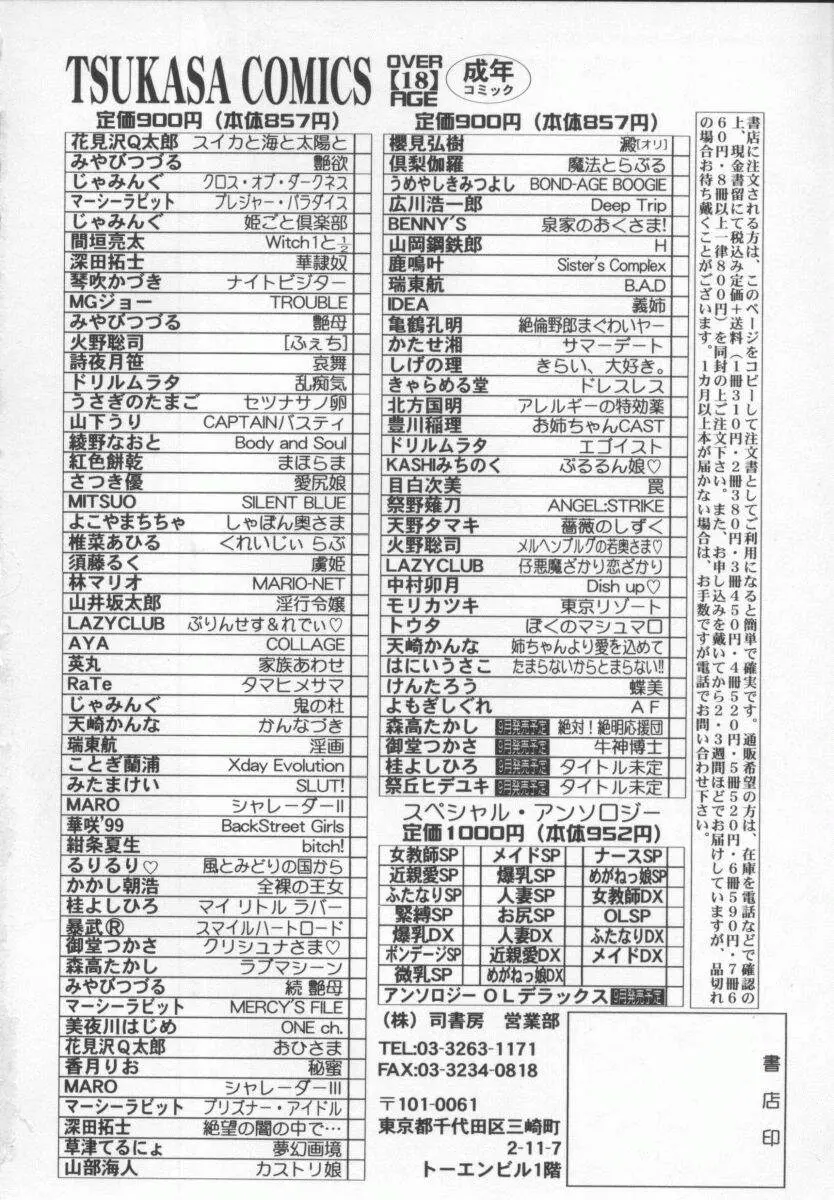 TSUKASA COMICS
OVER
【18】
AGE
成年
コミック
定価900円（本体857円）
花見沢Q太郎 スイカと海と太陽と
みやびつづる 艶欲
じゃみんぐ クロス・オブ・ダークネス
マーシーラビット プレジャー・パラダイス
じゃみんぐ 姫ごと倶楽部
間垣亮太 Witch1と½
深田拓士 華隷奴
琴吹かづき ナイトビジター
MGジョー TROUBLE
みやびつづる 艶母
火野聡司 [ふぇち]
詩夜月笹 哀舞
ドリルムラタ 乱痴気
うさぎのたまご セツナサノ卵
山下うり CAPTAINバスティ
綾野なおと Body and Soul
紅色餅乾 まほらま
さつき優 愛尻娘
MITSUO SILENT BLUE
よこやまちちゃ しゃぼん奥さま
椎菜あひる くれいじぃ らぶ
須藤るく 虜姫
林マリオ MARIO-NET
山井坂太郎 淫行令嬢
LAZYCLUB ぷりんせす&れでぃ♡
AYA COLLAGE
英丸 家族あわせ
RaTe タマヒメサマ
じゃみんぐ 鬼の杜
天崎かんな かんなづき
瑞東航 淫画
ことぎ蘭浦 Xday Evolution
みたまけい SLUT!
MARO シャレーダーII
華咲'99 BackStreet Girls
紺条夏生 bitch!
るりるり♡ 風とみどりの国から
かかし朝浩 全裸の王女
桂よしひろ マイ リトル ラバー
暴武Ⓡ スマイルハートロード
御堂つかさ クリシュナさま♡
森高たかし ラブマシーン
みやびつづる 続 艶母
マーシーラビット MERCY'S FILE
美夜川はじめ ONE ch.
花見沢Q太郎 おひさま
香月りお 秘蜜
MARO シャレーダーIII
マーシーラビット プリズナー・アイドル
深田拓士 絶望の闇の中で…
草津てるにょ 夢幻画境
山部海人 カストリ娘
定価900円（本体857円）
櫻見弘樹 澱[オリ]
倶梨伽羅 魔法とらぶる
うめやしきみつよし BOND-AGE BOOGIE
広川浩一郎 Deep Trip
BENNY'S 泉家のおくさま!
山岡鋼鉄郎 H
鹿鳴叶 Sister's Complex
瑞東航 B.A.D
IDEA 義姉
亀鶴孔明 絶倫野郎まぐわいヤー
かたせ湘 サマーデート
しげの理 きらい、大好き。
きゃらめる堂 ドレスレス
北方国明 アレルギーの特効薬
豊川稲理 お姉ちゃんCAST
ドリルムラタ エゴイスト
KASHIみちのく ぷるるん娘♡
目白次美 罠
祭野薙刀 ANGEL:STRIKE
天野タマキ 薔薇のしずく
火野聡司 メルヘンブルグの若奥さま♡
LAZYCLUB 仔悪魔ざかり恋ざかり
中村卯月 Dish up♡
モリカツキ 東京リゾート
トウタ ぼくのマシュマロ
天崎かんな 姉ちゃんより愛を込めて
はにいうさこ たまらないからとまらない!!
けんたろう 蝶美
よもぎしぐれ AF
森高たかし 9月発売予定 絶対！絶明応援団
御堂つかさ 9月発売予定 牛神博士
桂よしひろ 9月発売予定 タイトル未定
祭丘ヒデユキ 9月発売予定 タイトル未定
スペシャル・アンソロジー
定価1000円（本体952円）
女教師SP メイドSP ナースSP
近親愛SP 爆乳SP めがねっ娘SP
ふたなりSP 人妻SP 女教師DX
緊縛SP お尻SP OLSP
爆乳DX 人妻DX ふたなりDX
ボンデージSP 近親愛DX メイドDX
微乳SP めがねっ娘DX
アンソロジー OLデラックス 9月発売予定
（株）司書房 営業部
TEL:03-3263-1171
FAX:03-3234-0818
〒101-0061
東京都千代田区三崎町
2-11-7
トーエンビル1階
書店印
書店に注文される方は、このページをコピーして注文書としてご利用になると簡単で確実です。通販希望の方は、在庫を電話などで確認の
上、現金書留にて税込み定価＋送料（1冊310円・2冊380円・3冊450円・4冊520円・5冊520円・6冊590円・7冊6
60円・8冊以上一律800円）を同封の上ご注文下さい。また、お申し込みを戴いてから2・3週間ほどでお届けしていますが、品切れ
の場合お待ち戴くことがございます。1カ月以上本が届かない場合は、お手数ですが電話でお問い合わせ下さい。